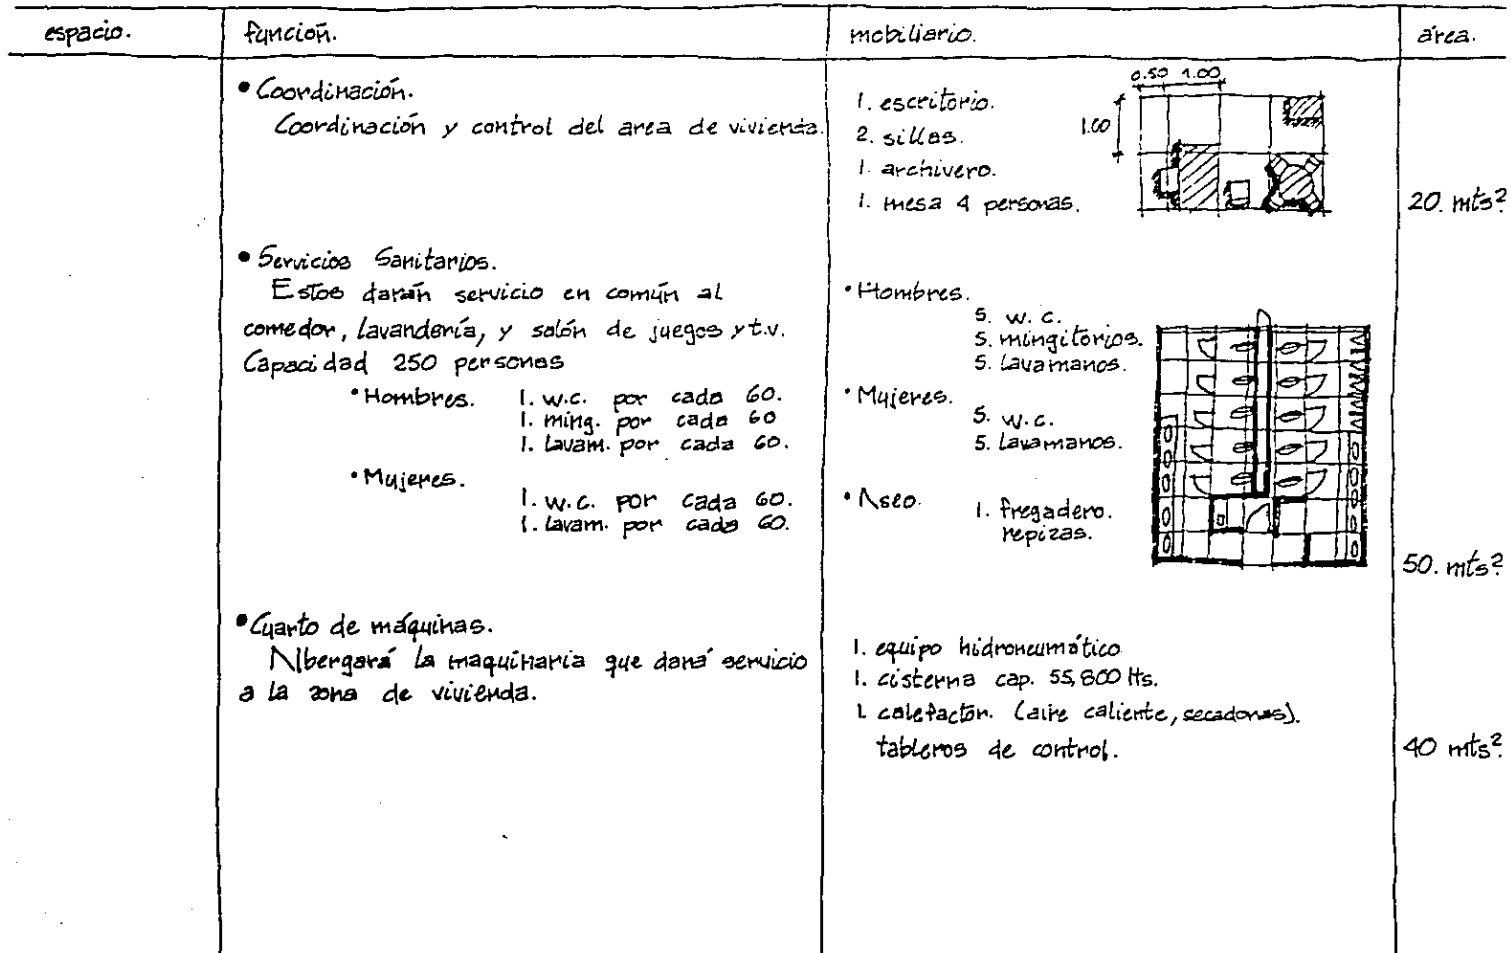 espacio. función. mobiliario. área.
• Coordinación.
Coordinación y control del area de vivienda.
1. escritorio.
2. sillas.
1. archivero.
1. mesa 4 personas.
0.50 1.00
1.00
20. mts²
• Servicios Sanitarios.
Estos darán servicio en común al
comedor, lavandería, y salón de juegos y t.v.
Capacidad 250 personas
• Hombres. 1. w.c. por cada 60.
1. ming. por cada 60
1. lavam. por cada 60.
• Mujeres.
1. w.c. por cada 60.
1. lavam. por cada 60.
• Hombres.
5. w.c.
5. mingitorios.
5. lavamanos.
• Mujeres.
5. w.c.
5. lavamanos.
• Aseo. 1. fregadero.
repizas.
50. mts²
• Cuarto de máquinas.
Albergará la maquinaria que dará servicio
a la zona de vivienda.
1. equipo hidroneumático
1. cisterna cap. 55,800 lts.
1. calefactor. (aire caliente, secadoras).
tableros de control.
40 mts²